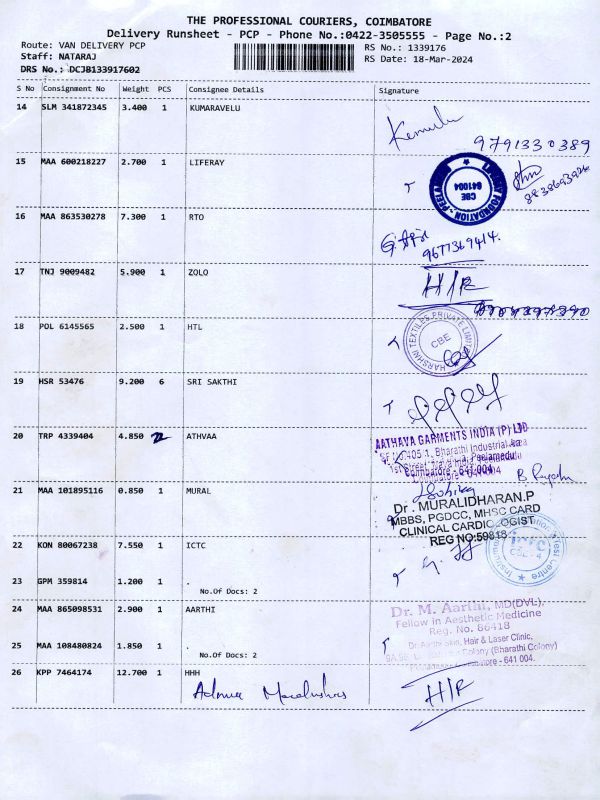 THE PROFESSIONAL COURIERS, COIMBATORE
Delivery Runsheet - PCP - Phone No.:0422-3505555 - Page No.:2
Route: VAN DELIVERY PCP RS No.: 1339176
Staff: NATARAJ RS Date: 18-Mar-2024
DRS No.: DCJB133917602
S No Consignment No Weight PCS Consignee Details Signature
14 SLM 341872345 3.400 1 KUMARAVELU
9791330389
15 MAA 600218227 2.700 1 LIFERAY
CBE
641004
16 MAA 863530278 7.300 1 RTO
9677369414.
17 TNJ 9009482 5.900 1 ZOLO
H/R
18 POL 6145565 2.500 1 HTL
HARSHNI TEXTILES PRIVATE LIMITED
CBE
19 HSR 53476 9.200 6 SRI SAKTHI
20 TRP 4339404 4.850 2 ATHVAA
AATHAVA GARMENTS INDIA (P) LTD
405 1, Bharathi Industrial Area
1st Street, Peelamedu
Coimbatore - 641 004.
21 MAA 101895116 0.850 1 MURAL
Dr. MURALIDHARAN.P
MBBS, PGDCC, MHSC CARD
CLINICAL CARDIOLOGIST
REG NO:59818
22 KON 80067238 7.550 1 ICTC
ictc
23 GPM 359814 1.200 1 .
No.Of Docs: 2
24 MAA 865098531 2.900 1 AARTHI
Dr. M. Aarthi, MD(DVL).
Fellow in Aesthetic Medicine
Reg. No. 86418
Dr. Aarthi Skin, Hair & Laser Clinic,
Colony (Bharathi Colony)
641 004.
25 MAA 108480824 1.850 1 .
No.Of Docs: 2
26 KPP 7464174 12.700 1 HHH
H/R